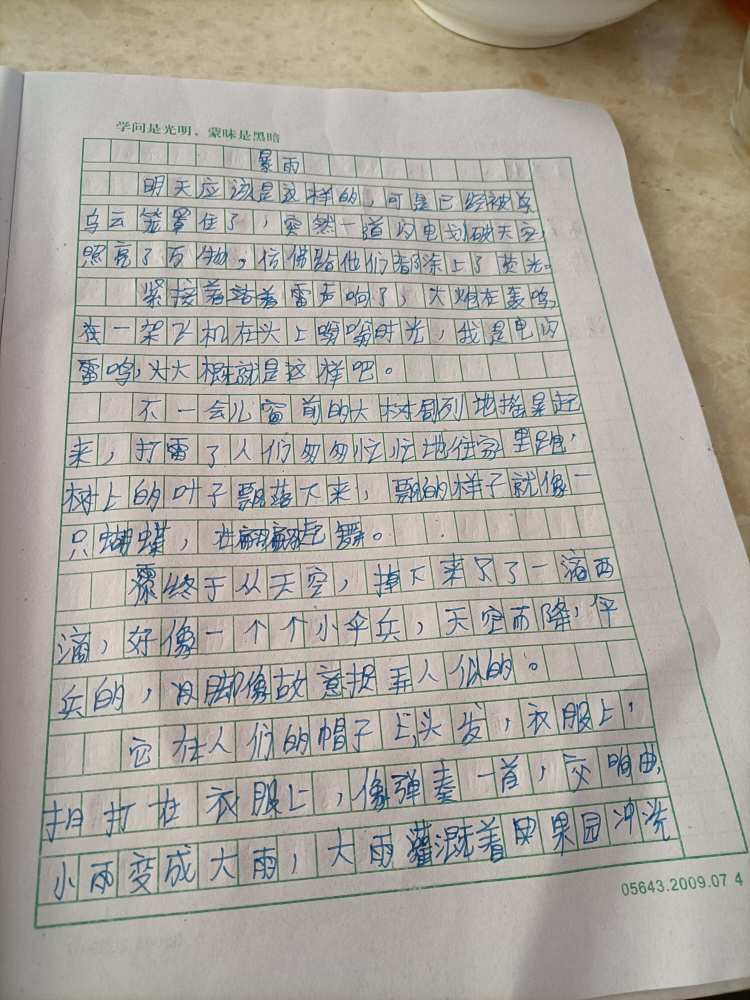 学问是光明，蒙昧是黑暗
暴雨
明天应该是这样的，可是已经被
乌云笼罩住了，突然一道闪电划破天空，
照亮了万物，仿佛给他们都涂上了荧光。
紧接着站着雷声响了，大炮在轰鸣，
一架飞机在头上嗡嗡时光，我是电闪
雷鸣，大概就是这样吧。
不一会儿窗前的大树剧烈地摇晃起
来，打雷了人们匆匆忙忙地往家里跑，
树上的叶子飘落下来，飘的样子就像一
只蝴蝶，在翩翩起舞。
终于从天空，掉下来了一滴两
滴，好像一个个小伞兵，天空而降，伞
兵的，脚像故意捉弄人似的。
它在人们的帽子上，头发，衣服上，
打在衣服上，像弹奏一首，交响曲，
小雨变成大雨，大雨灌溉着果园冲洗
05643.2009.07 4